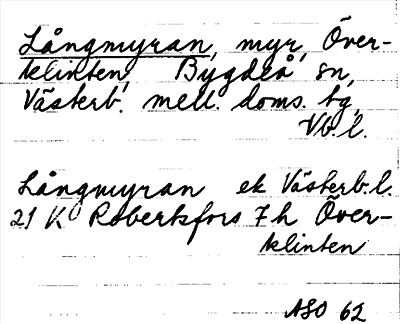 Långmyran, myr, Över-
klinten, Bygdeå sn,
Västerb. mell. doms. tg,
Vb. l.
Långmyran ek Västerb. l.
21 K Robertsfors 7 h Över-
klinten
ASO 62